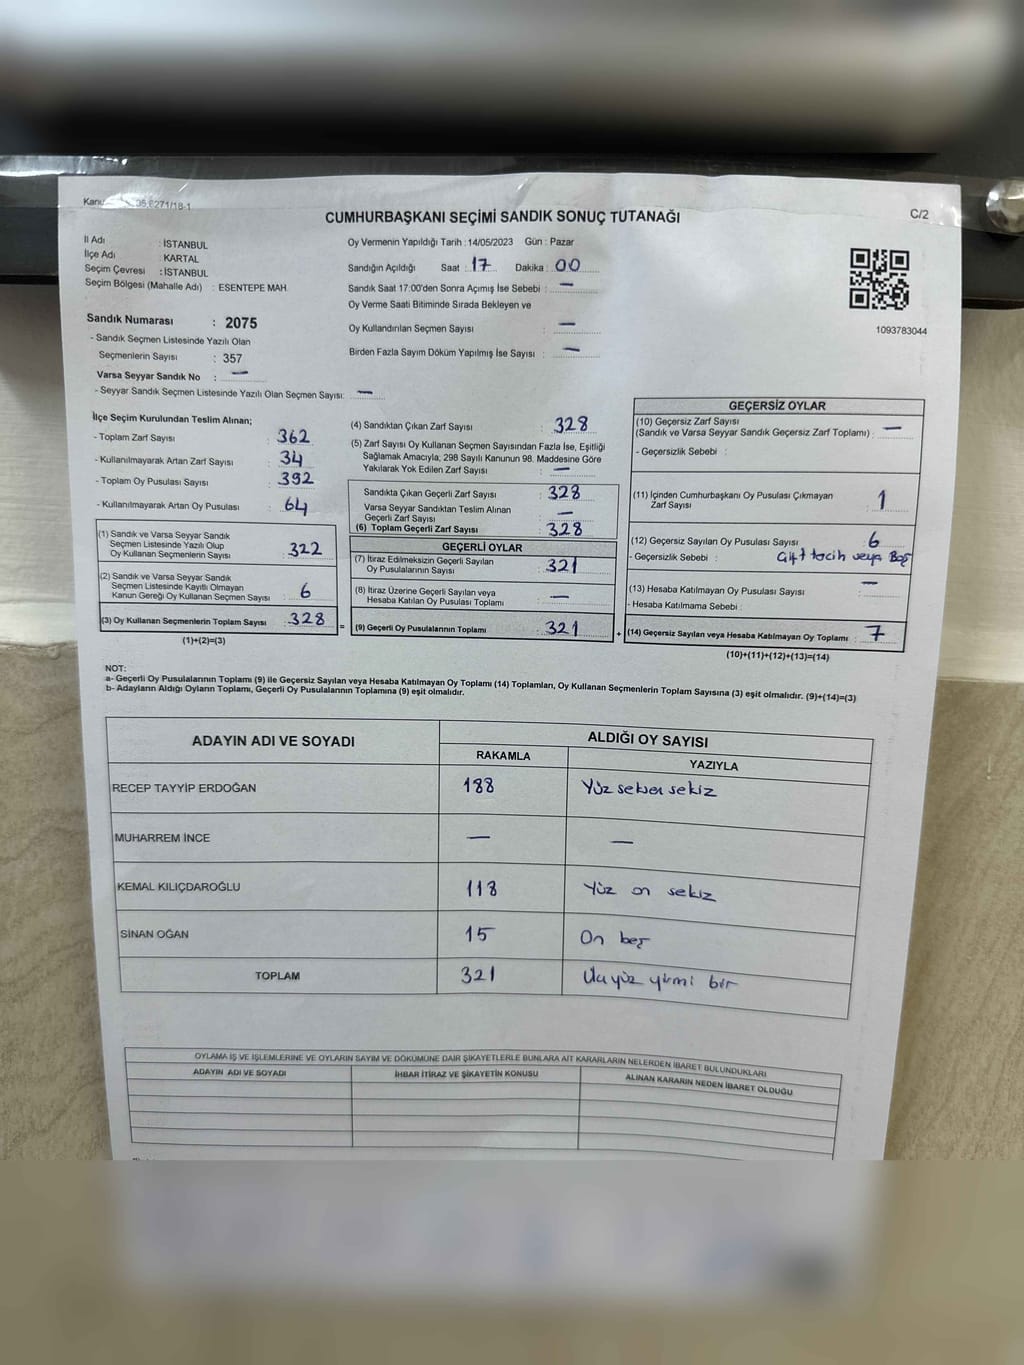 CUMHURBAŞKANI SEÇİMİ SANDIK SONUÇ TUTANAĞI
C/2
İl Adı : İSTANBUL
İlçe Adı : KARTAL
Seçim Çevresi : İSTANBUL
Seçim Bölgesi (Mahalle Adı) : ESENTEPE MAH.
Sandık Numarası : 2075
- Sandık Seçmen Listesinde Yazılı Olan
Seçmenlerin Sayısı : 357
Varsa Seyyar Sandık No : —
- Seyyar Sandık Seçmen Listesinde Yazılı Olan Seçmen Sayısı: —
Oy Vermenin Yapıldığı Tarih : 14/05/2023 Gün : Pazar
Sandığın Açıldığı Saat : 17 Dakika : 00
Sandık Saat 17:00'den Sonra Açımış İse Sebebi : —
Oy Verme Saati Bitiminde Sırada Bekleyen ve
Oy Kullandırılan Seçmen Sayısı : —
Birden Fazla Sayım Döküm Yapılmış İse Sayısı : —
1093783044
İlçe Seçim Kurulundan Teslim Alınan;
- Toplam Zarf Sayısı : 362
- Kullanılmayarak Artan Zarf Sayısı : 34
- Toplam Oy Pusulası Sayısı : 392
- Kullanılmayarak Artan Oy Pusulası : 64
(1) Sandık ve Varsa Seyyar Sandık
Seçmen Listesinde Yazılı Olup
Oy Kullanan Seçmenlerin Sayısı : 322
(2) Sandık ve Varsa Seyyar Sandık
Seçmen Listesinde Kayıtlı Olmayan
Kanun Gereği Oy Kullanan Seçmen Sayısı : 6
(3) Oy Kullanan Seçmenlerin Toplam Sayısı : 328
(1)+(2)=(3)
(4) Sandıktan Çıkan Zarf Sayısı : 328
(5) Zarf Sayısı Oy Kullanan Seçmen Sayısından Fazla İse, Eşitliği
Sağlamak Amacıyla, 298 Sayılı Kanunun 98. Maddesine Göre
Yakılarak Yok Edilen Zarf Sayısı : —
Sandıkta Çıkan Geçerli Zarf Sayısı : 328
Varsa Seyyar Sandıktan Teslim Alınan
Geçerli Zarf Sayısı : —
(6) Toplam Geçerli Zarf Sayısı : 328
GEÇERLİ OYLAR
(7) İtiraz Edilmeksizin Geçerli Sayılan
Oy Pusulalarının Sayısı : 321
(8) İtiraz Üzerine Geçerli Sayılan veya
Hesaba Katılan Oy Pusulası Toplamı : —
= (9) Geçerli Oy Pusulalarının Toplamı : 321
GEÇERSİZ OYLAR
(10) Geçersiz Zarf Sayısı
(Sandık ve Varsa Seyyar Sandık Geçersiz Zarf Toplamı) : —
- Geçersizlik Sebebi :
(11) İçinden Cumhurbaşkanı Oy Pusulası Çıkmayan
Zarf Sayısı : 1
(12) Geçersiz Sayılan Oy Pusulası Sayısı : 6
- Geçersizlik Sebebi : Çift tercih veya Boş
(13) Hesaba Katılmayan Oy Pusulası Sayısı : —
- Hesaba Katılmama Sebebi :
+ (14) Geçersiz Sayılan veya Hesaba Katılmayan Oy Toplamı : 7
(10)+(11)+(12)+(13)=(14)
NOT:
a- Geçerli Oy Pusulalarının Toplamı (9) ile Geçersiz Sayılan veya Hesaba Katılmayan Oy Toplamı (14) Toplamları, Oy Kullanan Seçmenlerin Toplam Sayısına (3) eşit olmalıdır. (9)+(14)=(3)
b- Adayların Aldığı Oyların Toplamı, Geçerli Oy Pusulalarının Toplamına (9) eşit olmalıdır.
ADAYIN ADI VE SOYADI ALDIĞI OY SAYISI
RAKAMLA YAZIYLA
RECEP TAYYİP ERDOĞAN 188 Yüz seksen sekiz
MUHARREM İNCE — —
KEMAL KILIÇDAROĞLU 118 Yüz on sekiz
SİNAN OĞAN 15 On beş
TOPLAM 321 Üçyüz yirmi bir
OYLAMA İŞ VE İŞLEMLERİNE VE OYLARIN SAYIM VE DÖKÜMÜNE DAİR ŞİKAYETLERLE BUNLARA AİT KARARLARIN NELERDEN İBARET BULUNDUKLARI
ADAYIN ADI VE SOYADI İHBAR İTİRAZ VE ŞİKAYETİN KONUSU ALINAN KARARIN NEDEN İBARET OLDUĞU